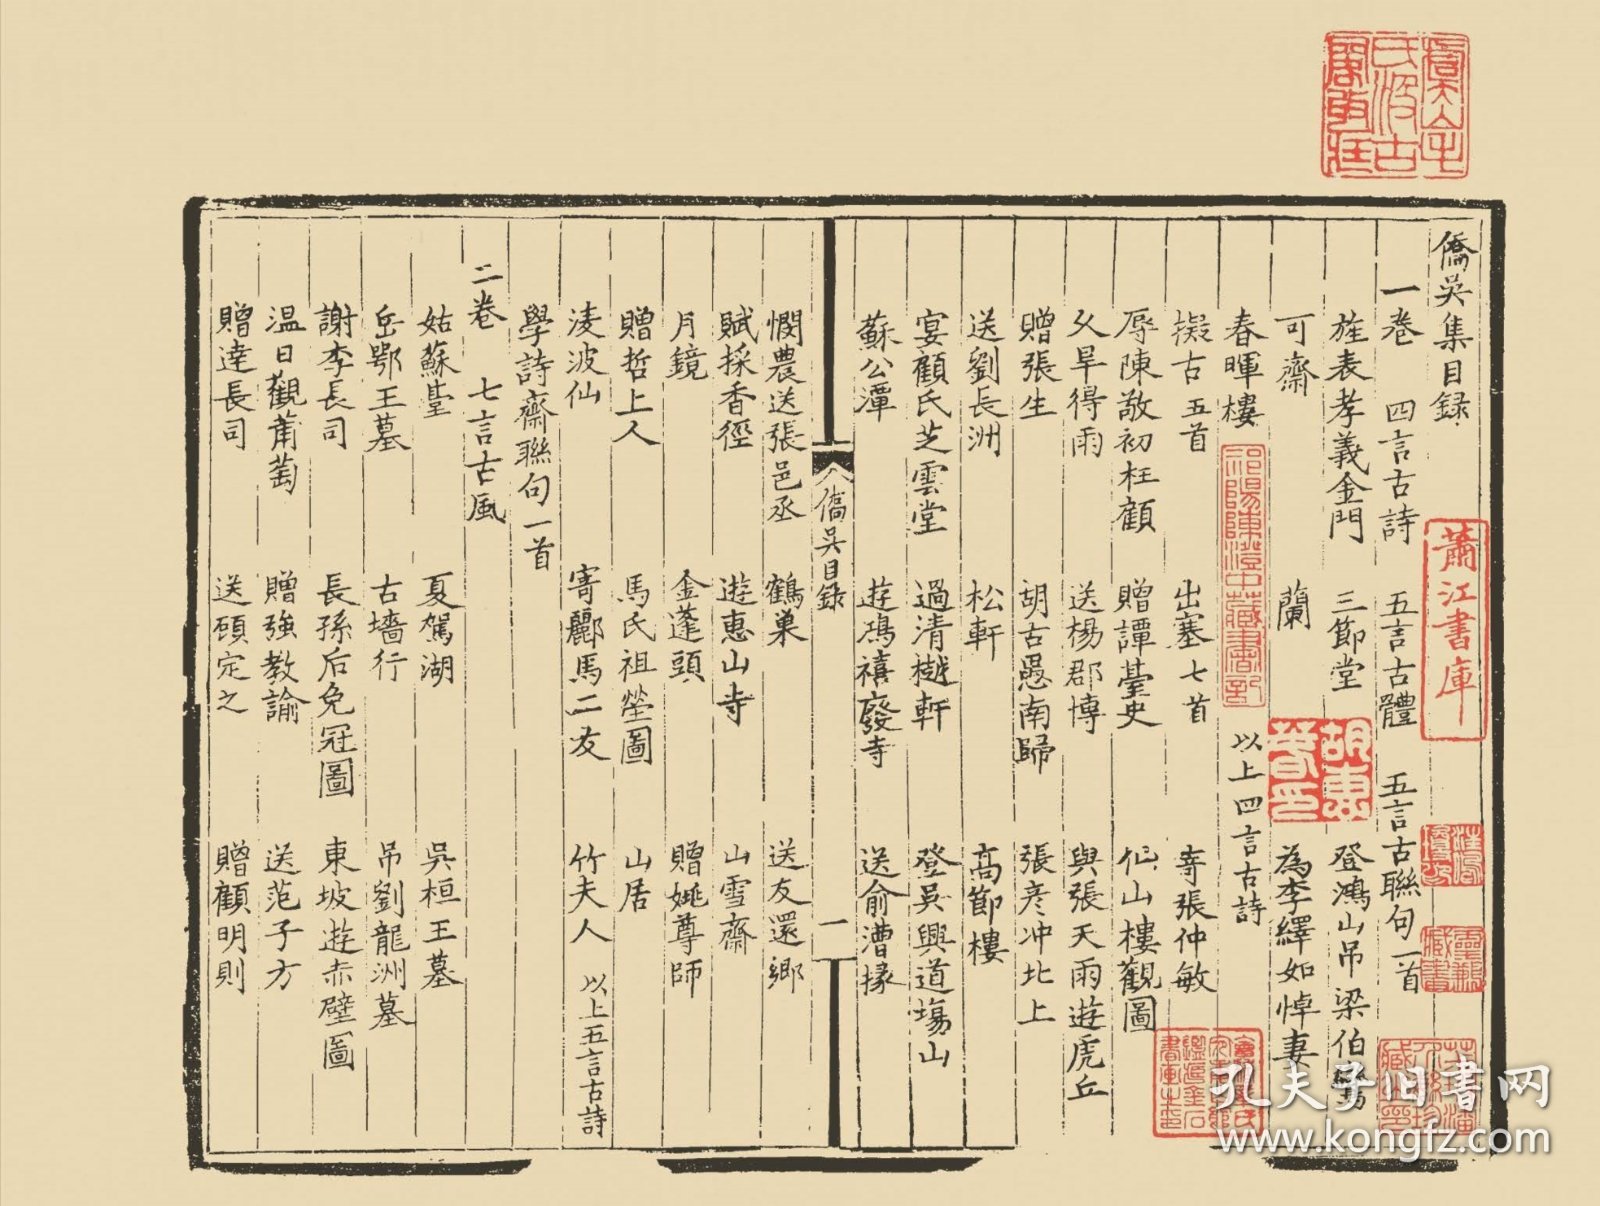 僑吳集目録
一卷 四言古詩 五言古體 五言古聯句一首
旌表孝義金門 三節堂 登鴻山吊梁伯鸞
可齋 蘭 為李繹如悼妻
春暉樓 以上四言古詩
擬古五首 出塞七首 寄張仲敏
辱陳敬初枉顧 贈譚臺史 仙山樓觀圖
久旱得雨 送楊郡博 與張天雨遊虎丘
贈張生 胡古愚南歸 張彦冲北上
送劉長洲 松軒 高節樓
宴顧氏芝雲堂 過清樾軒 登吳興道場山
蘇公潭 遊鴻禧廢寺 送俞漕掾
僑吳目錄 一
憫農送張邑丞 鶴巢 送友還鄉
賦採香徑 遊惠山寺 山雪齋
月鏡 金蓬頭 贈姚尊師
贈哲上人 馬氏祖塋圖 山居
淩波仙 寄酈馬二友 竹夫人 以上五言古詩
學詩齋聯句一首
二卷 七言古風
姑蘇臺 夏駕湖 吳桓王墓
岳鄂王墓 古墻行 吊劉龍洲墓
謝李長司 長孫后免冠圖 東坡遊赤壁圖
温日觀葡萄 贈強教諭 送范子方
贈達長司 送顾定之 贈顧明則
蕭江書庫
胡惠春印
孔夫子旧书网
www.kongfz.com